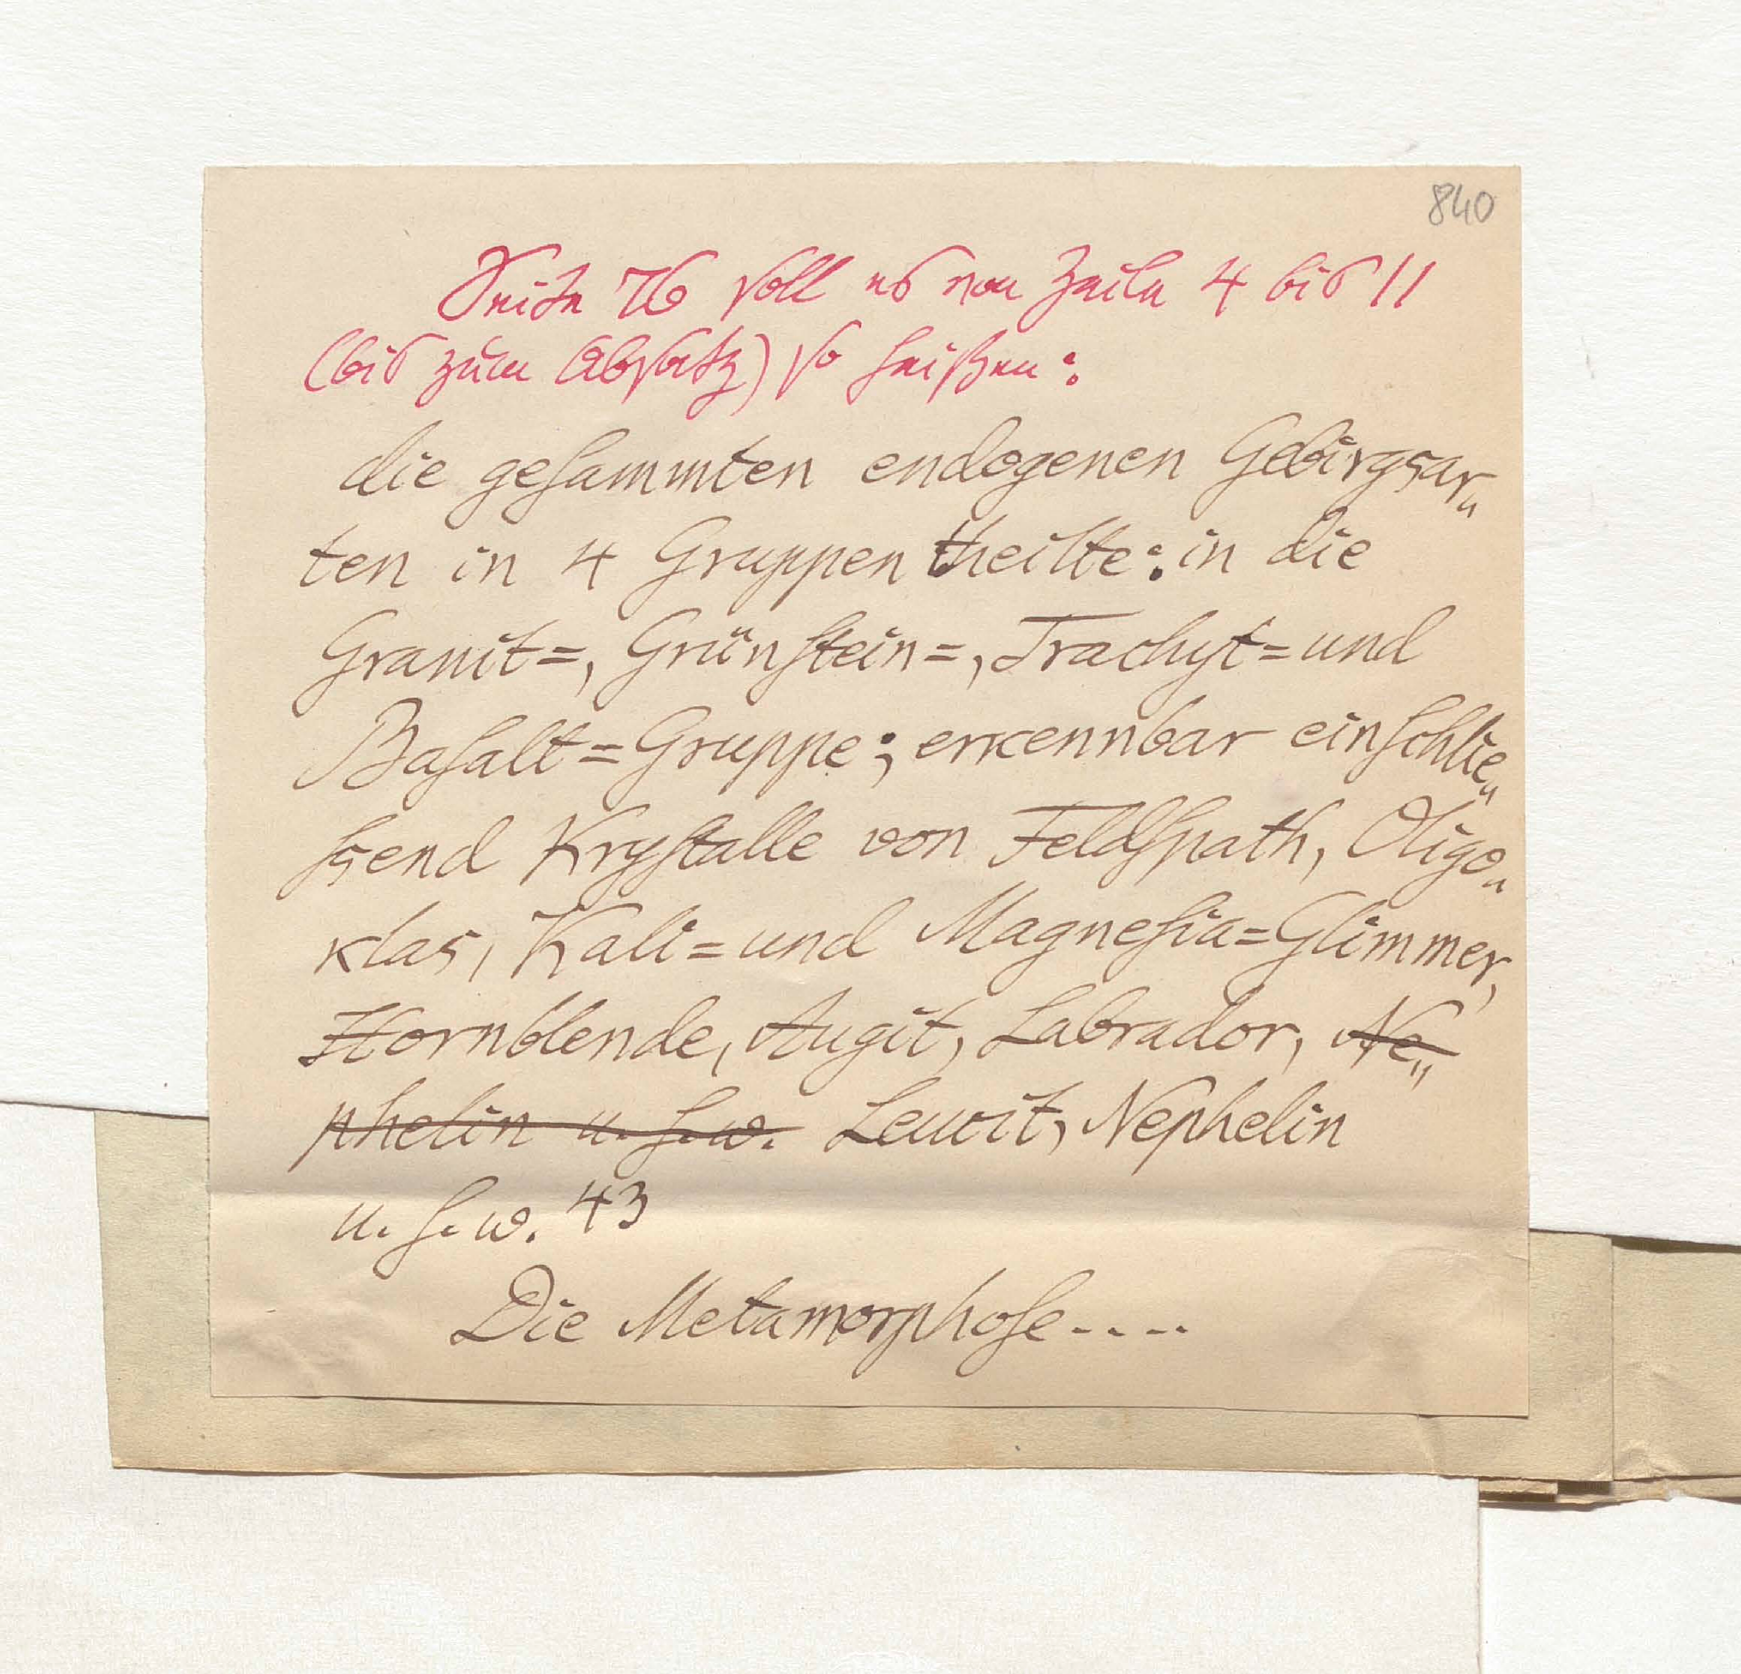 840
Seite 76 soll es von Zeile 4 bis 11
(bis zum Absatz) so heißen:
die gesammten endogenen Gebirgsar„
ten in 4 Gruppen theilte: in die
Granit=, Grünstein=, Trachyt= und
Basalt=Gruppe; erkennbar einschlie„
ßend Krystalle von Feldspath, Oligo„
klas, Kali= und Magnesia=Glimmer,
Hornblende, Augit, Labrador, Ne„
phelin u. s. w. Leucit, Nephelin
u. s. w. 43
Die Metamorphose----